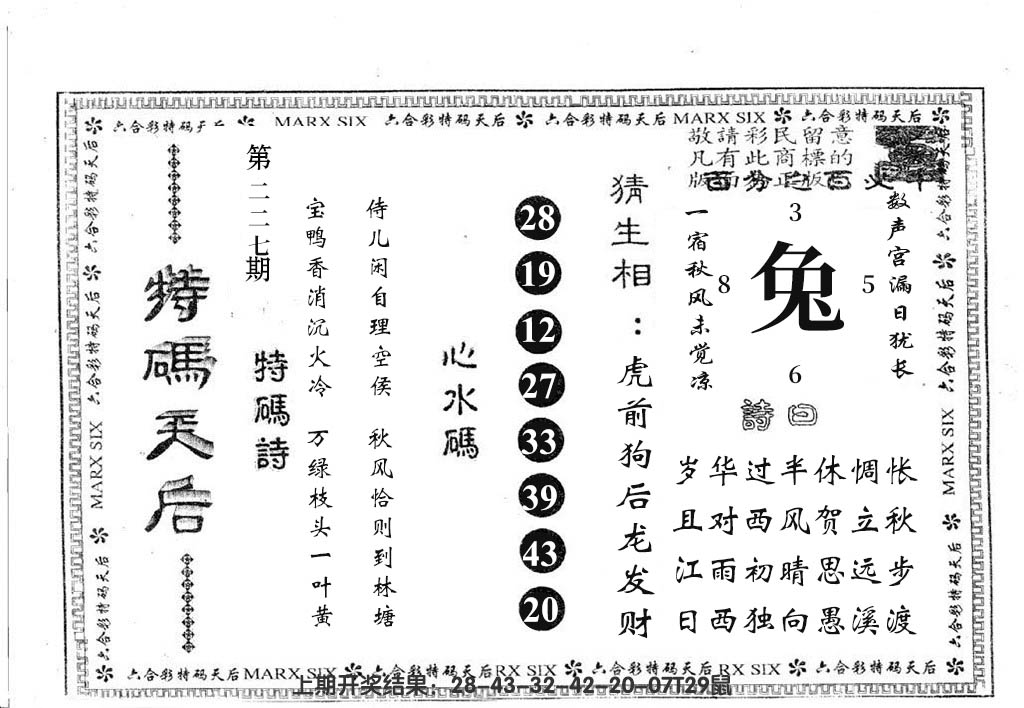 六合彩特码天后 MARX SIX 六合彩特码天后 六合彩特码天后 MARX SIX 六合彩特码天后
敬請彩民留意
凡有此商標的
特碼天后
第二二七期
特碼詩
宝鸭香消沉火冷 万绿枝头一叶黄
侍儿闲自理空侯 秋风恰则到林塘
心水碼
28
19
12
27
33
39
43
20
猜生相：虎前狗后龙发财
一宿秋风未觉凉
3
8
兔
5
6
数声宫漏日犹长
詩曰
岁华过半休惆怅
且对西风贺立秋
江雨初晴思远步
日西独向愚溪渡
六合彩特码天后
MARX SIX
六合彩特码天后
六合彩特码天后
MARX SIX
六合彩特码天后
六合彩特码天后 MARX SIX 六合彩特码天后 RX SIX 六合彩特码天后 RX SIX 六合彩特码天后
上期开奖结果：28-43-32-42-20-07T29鼠